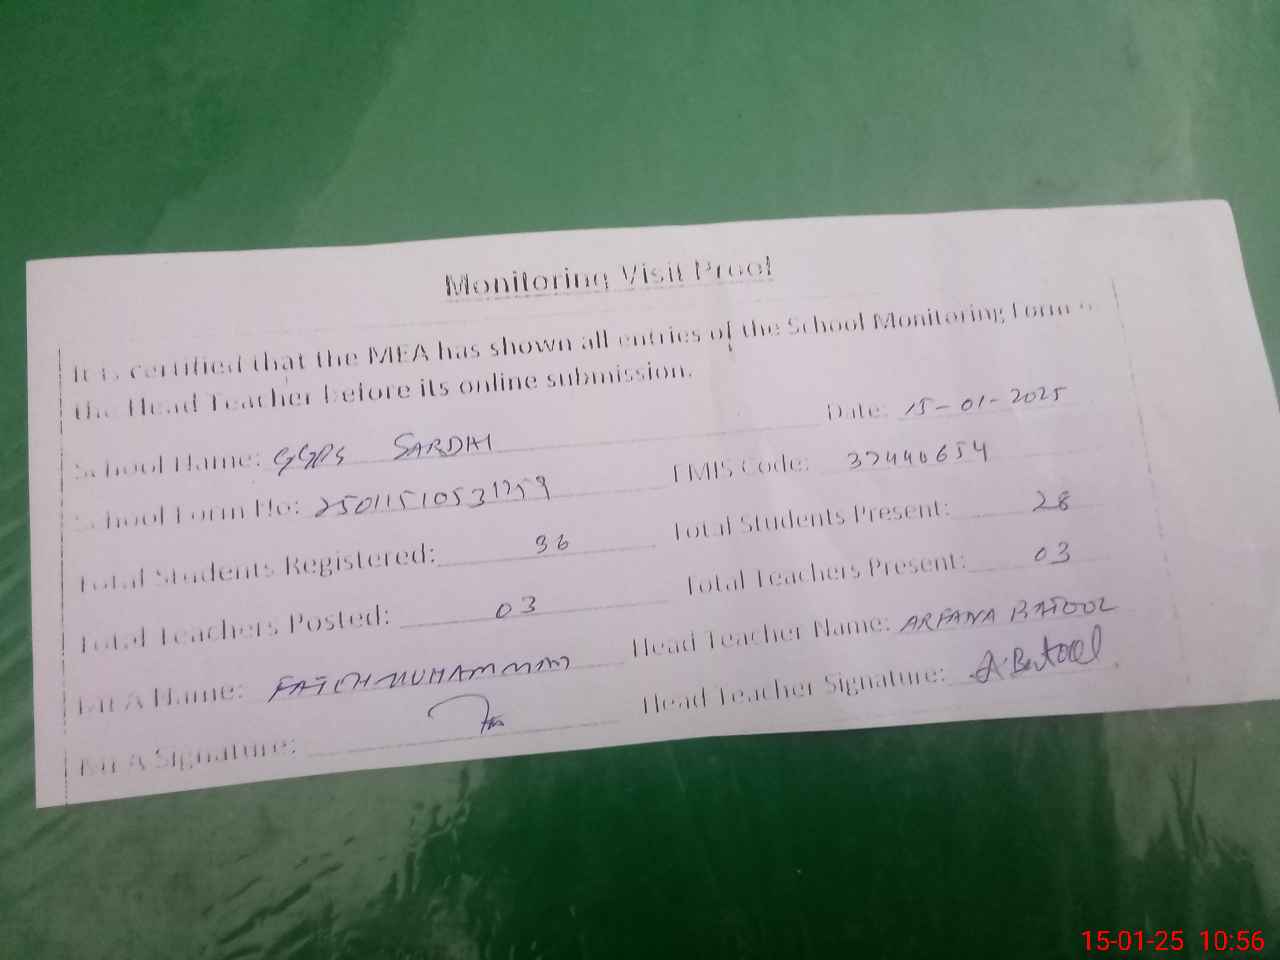 Monitoring Visit Proof
It is certified that the MEA has shown all entries of the School Monitoring Form to
the Head Teacher before its online submission.
School Name: GGPS SARDHI Date: 15-01-2025
School Form No: EMIS Code: 37440654
Total Students Registered: 36 Total Students Present: 28
Total Teachers Posted: 03 Total Teachers Present: 03
MEA Name: FATEH MUHAMMAD Head Teacher Name: ARFANA BATOOL
MEA Signature: Head Teacher Signature: A. Batool
15-01-25 10:56